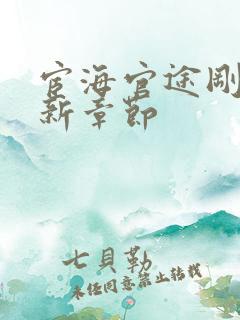 宦海官途剛
新章節
七貝勒
未经同意禁止转载